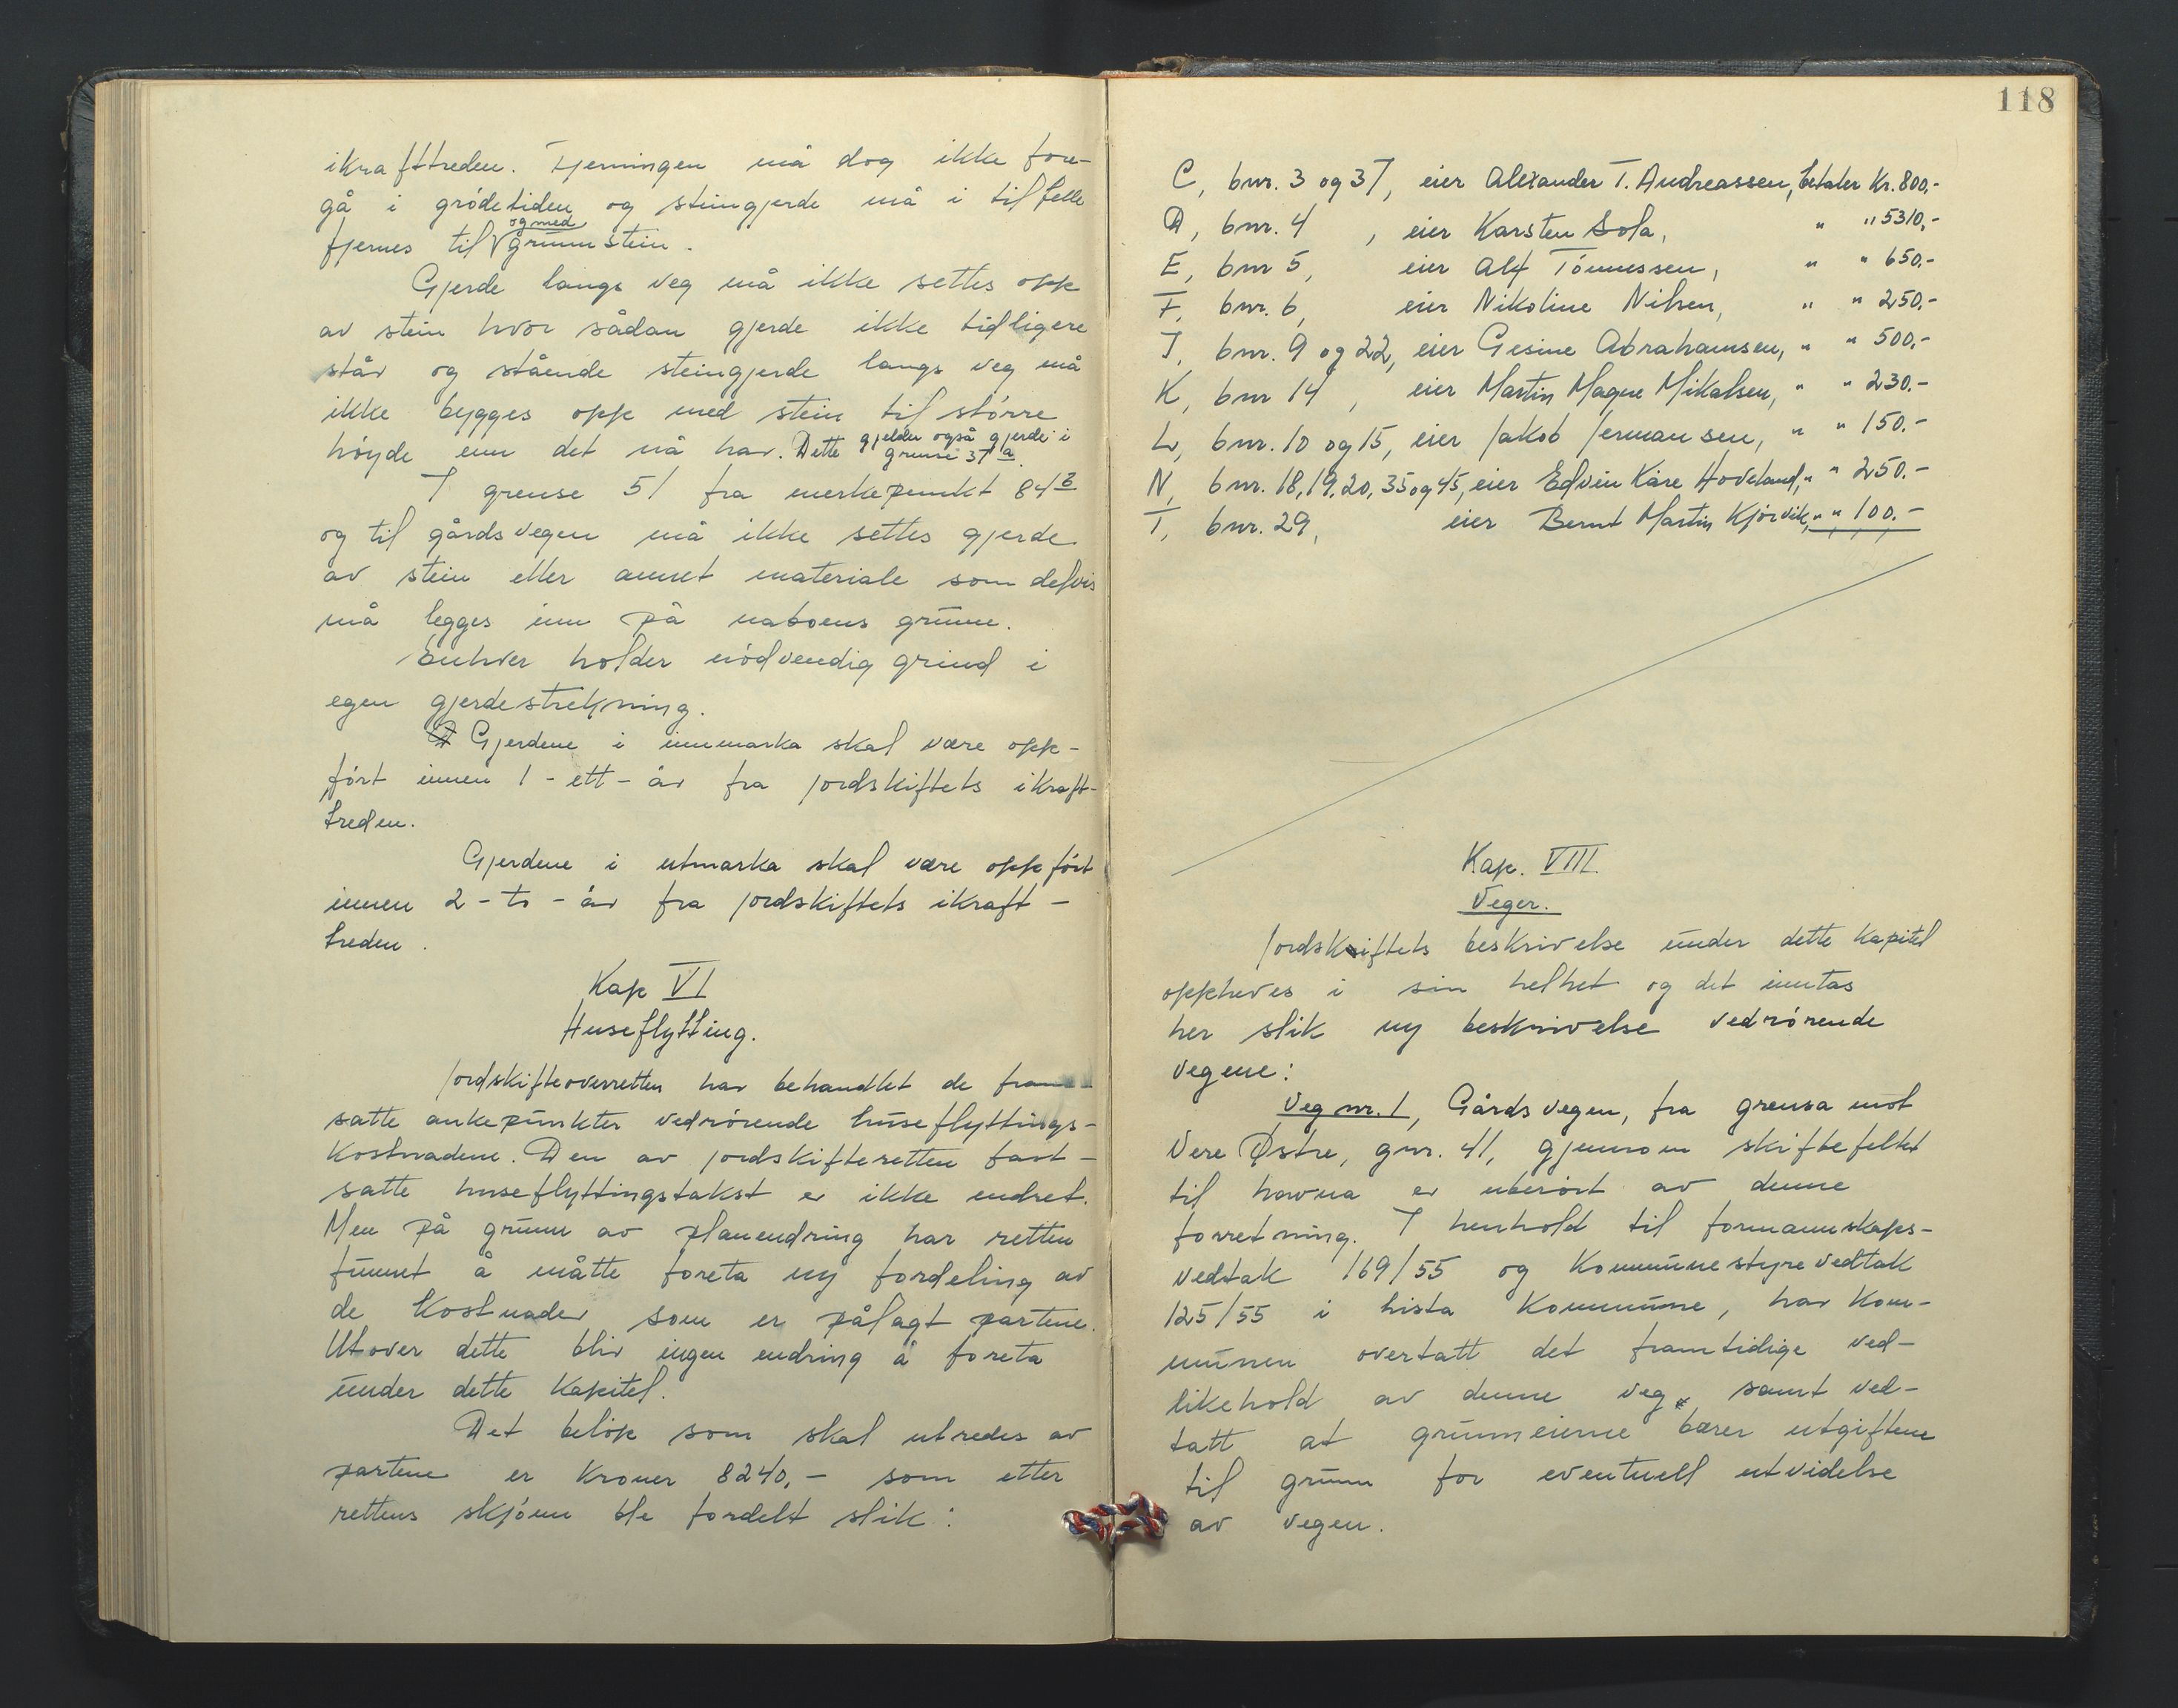 ikrafttreden. Fjerningen må dog ikke fore-
gå i grödetiden og steingjerde må i tilfelle
fjernes til og med grunnstein.
Gjerde langs veg må ikke settes opp
av stein hvor sådan gjerde ikke tidligere
står og stående steingjerde langs veg må
ikke bygges opp med stein til större
höyde enn det nå har. Dette gjelder også gjerde i grense 37 a.
I grense 51 fra merkepunkt 84 B
og til gårdsvegen må ikke settes gjerde
av stein eller annet materiale som delvis
må legges inn på naboens grunn.
Enhver holder nödvendig grind i
egen gjerdestrekning.
Gjerdene i innmarka skal være opp-
fört innen 1 - ett - år fra jordskiftets ikraft-
treden.
Gjerdene i utmarka skal være oppfört
innen 2 - to - år fra jordskiftets ikraft-
treden.
Kap VI
Huseflytting.
Jordskifteoverretten har behandlet de fram
satte ankepunkter vedrörende huseflyttings-
kostnadene. Den av jordskifteretten fast-
satte huseflyttingstakst er ikke endret.
Men på grunn av planendring har retten
funnet å måtte foreta ny fordeling av
de kostnader som er pålagt partene.
Utover dette blir ingen endring å foreta
under dette kapitel.
Det belöp som skal utredes av
partene er kroner 8240,- som etter
rettens skjönn ble fordelt slik:
118
C, bnr. 3 og 37, eier Alexander T. Andreassen, betaler Kr. 800,-
D, bnr. 4, eier Karsten Sola, " " 5310,-
E, bnr 5, eier Alf Tönnessen, " " 650.-
F, bnr. 6, eier Nikoline Nilsen, " " 250,-
I, bnr. 9 og 22, eier Gesine Abrahamsen, " " 500,-
K, bnr 14, eier Martin Magne Mikalsen, " " 230.-
L, bnr. 10 og 15, eier Jakob Jermansen, " " 150.-
N, bnr. 18, 19, 20, 35 og 45, eier Edvin Kåre Hoveland, " " 250.-
T, bnr. 29, eier Bernt Martin Kjörvik, " " 100.-
Kap. VIII.
Veger.
Jordskiftets beskrivelse under dette kapitel
oppheves i sin helhet og det inntas
her slik ny beskrivelse vedrörende
vegene:
Veg nr. 1, Gårdsvegen, fra grensa mot
Vere Østre, gnr. 41, gjennom skiftefeltet
til havna er uberört av denne
forretning. I henhold til formannskaps-
vedtak 169/55 og kommunestyrevedtak
125/55 i Lista kommune, har kom-
munen overtatt det framtidige ved-
likehold av denne veg, samt ved-
tatt at grunneierne bærer utgiftene
til grunn for eventuell utvidelse
av vegen.